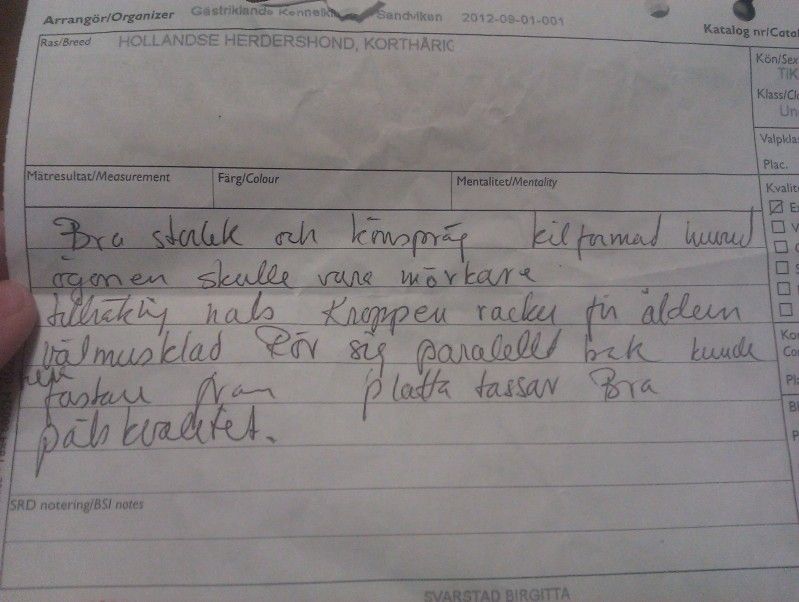 Arrangör/Organizer Gästriklands Kennelkl Sandviken 2012-09-01-001
Katalog nr/Catal
Ras/Breed HOLLANDSE HERDERSHOND, KORTHÅRIG
Kön/Sex
TIK
Klass/Cl
Un
Valpkla
Plac.
Mätresultat/Measurement Färg/Colour Mentalitet/Mentality
Kvalite
Bra storlek och könspräg kilformad huvud
ögonen skulle vara mörkare
tillräklig hals Kroppen racker för åldern
välmusklad Rör sig paralellt bak kunde
fastare fram platta tassar Bra
pälskvalitet.
SRD notering/BSI notes
SVARSTAD BIRGITTA